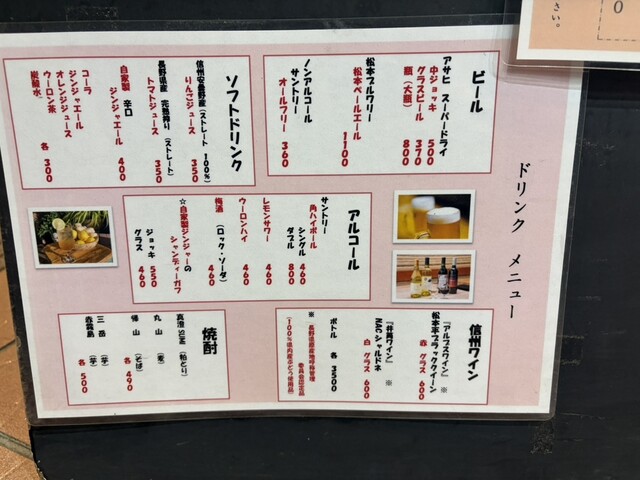 ドリンク メニュー
ビール
アサヒ スーパードライ
中ジョッキ 500
グラスビール 370
瓶(大瓶) 800
松本ブルワリー
松本ペールエール 1100
ノンアルコール
サントリー
オールフリー 360
ソフトドリンク
信州安曇野産(ストレート100%)
りんごジュース 350
長野県産 完熟搾り(ストレート)
トマトジュース 350
自家製 辛口
ジンジャエール 400
コーラ
ジンジャエール
オレンジジュース
ウーロン茶
炭酸水 各 300
アルコール
サントリー
角ハイボール
シングル 460
ダブル 800
レモンサワー 460
ウーロンハイ 460
梅酒 (ロック・ソーダ) 460
☆自家製ジンジャーの
シャンディーガフ
ジョッキ 550
グラス 460
信州ワイン
『アルプスワイン』 ※
松本平ブラッククイーン
赤 グラス 600
『井筒ワイン』 ※
NACシャルドネ
白 グラス 600
ボトル 各 3500
※ 長野県原産地呼称管理
委員会認定品
(100%県内産ぶどう使用品)
焼酎
真澄 (粕とり)
丸山 (麦)
帰山 (そば)
各 490
三岳 (芋)
赤霧島 (芋)
各 500
さい。
0